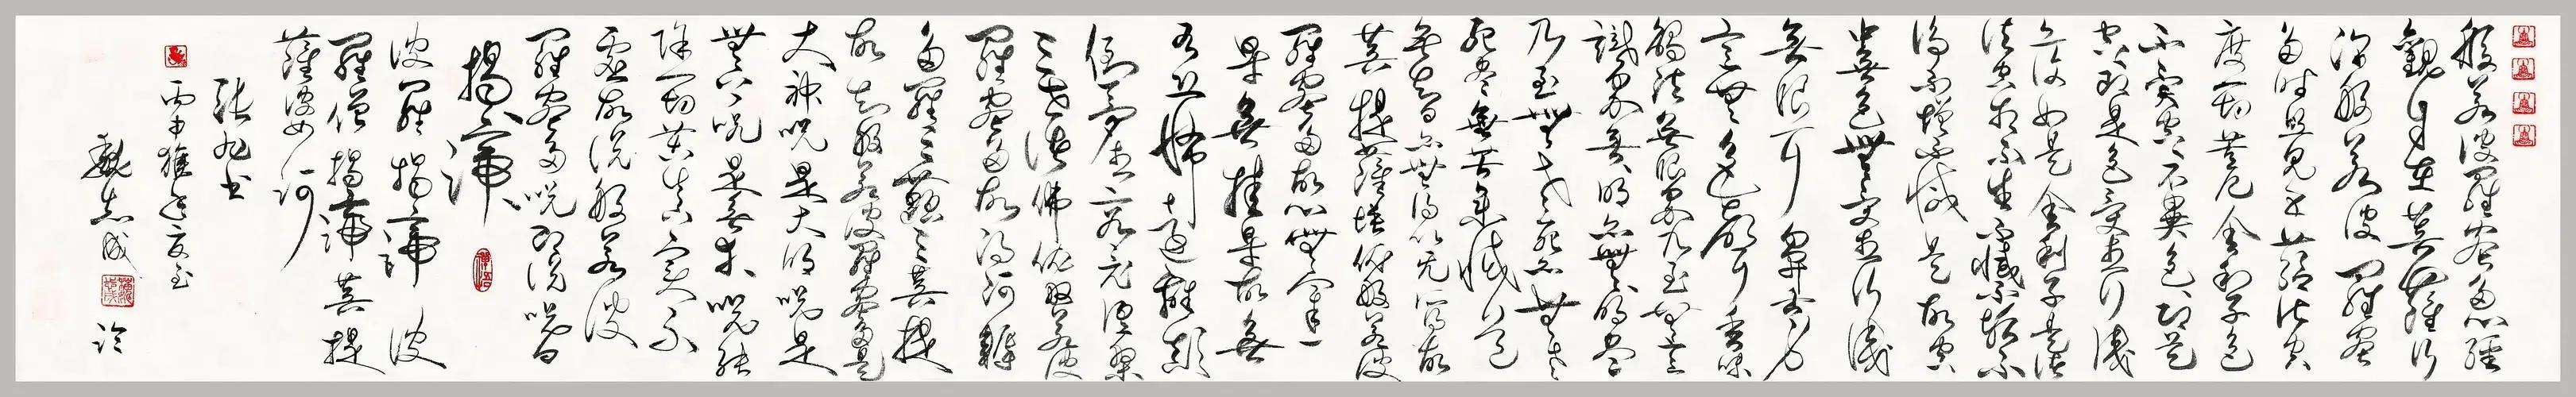 般若波羅蜜多心經
觀自在菩薩行
深般若波羅蜜
多時照見五蘊皆空
度一切苦厄舍利子色
不異空空不異色色即是
空空即是色受想行識
亦復如是舍利子是諸
法空相不生不滅不垢不
淨不增不減是故空
中無色無受想行識
無眼耳鼻舌身
意無色聲香味
觸法無眼界乃至無意
識界無無明亦無無明盡
乃至無老死亦無老
死盡無苦集滅道
無智亦無得以無所得故
菩提薩埵依般若波
羅蜜多故心無罣
礙無罣礙故無
有恐怖遠離顛
倒夢想究竟涅槃
三世諸佛依般若波
羅蜜多故得阿耨
多羅三藐三菩提
故知般若波羅蜜多是
大神咒是大明咒是
無上咒是無等等咒能
除一切苦真實不
虛故說般若波
羅蜜多咒即說咒曰
揭諦
波羅揭諦波
羅僧揭諦菩提
薩婆訶
張旭書
丙申猴年夏至
魏志成臨